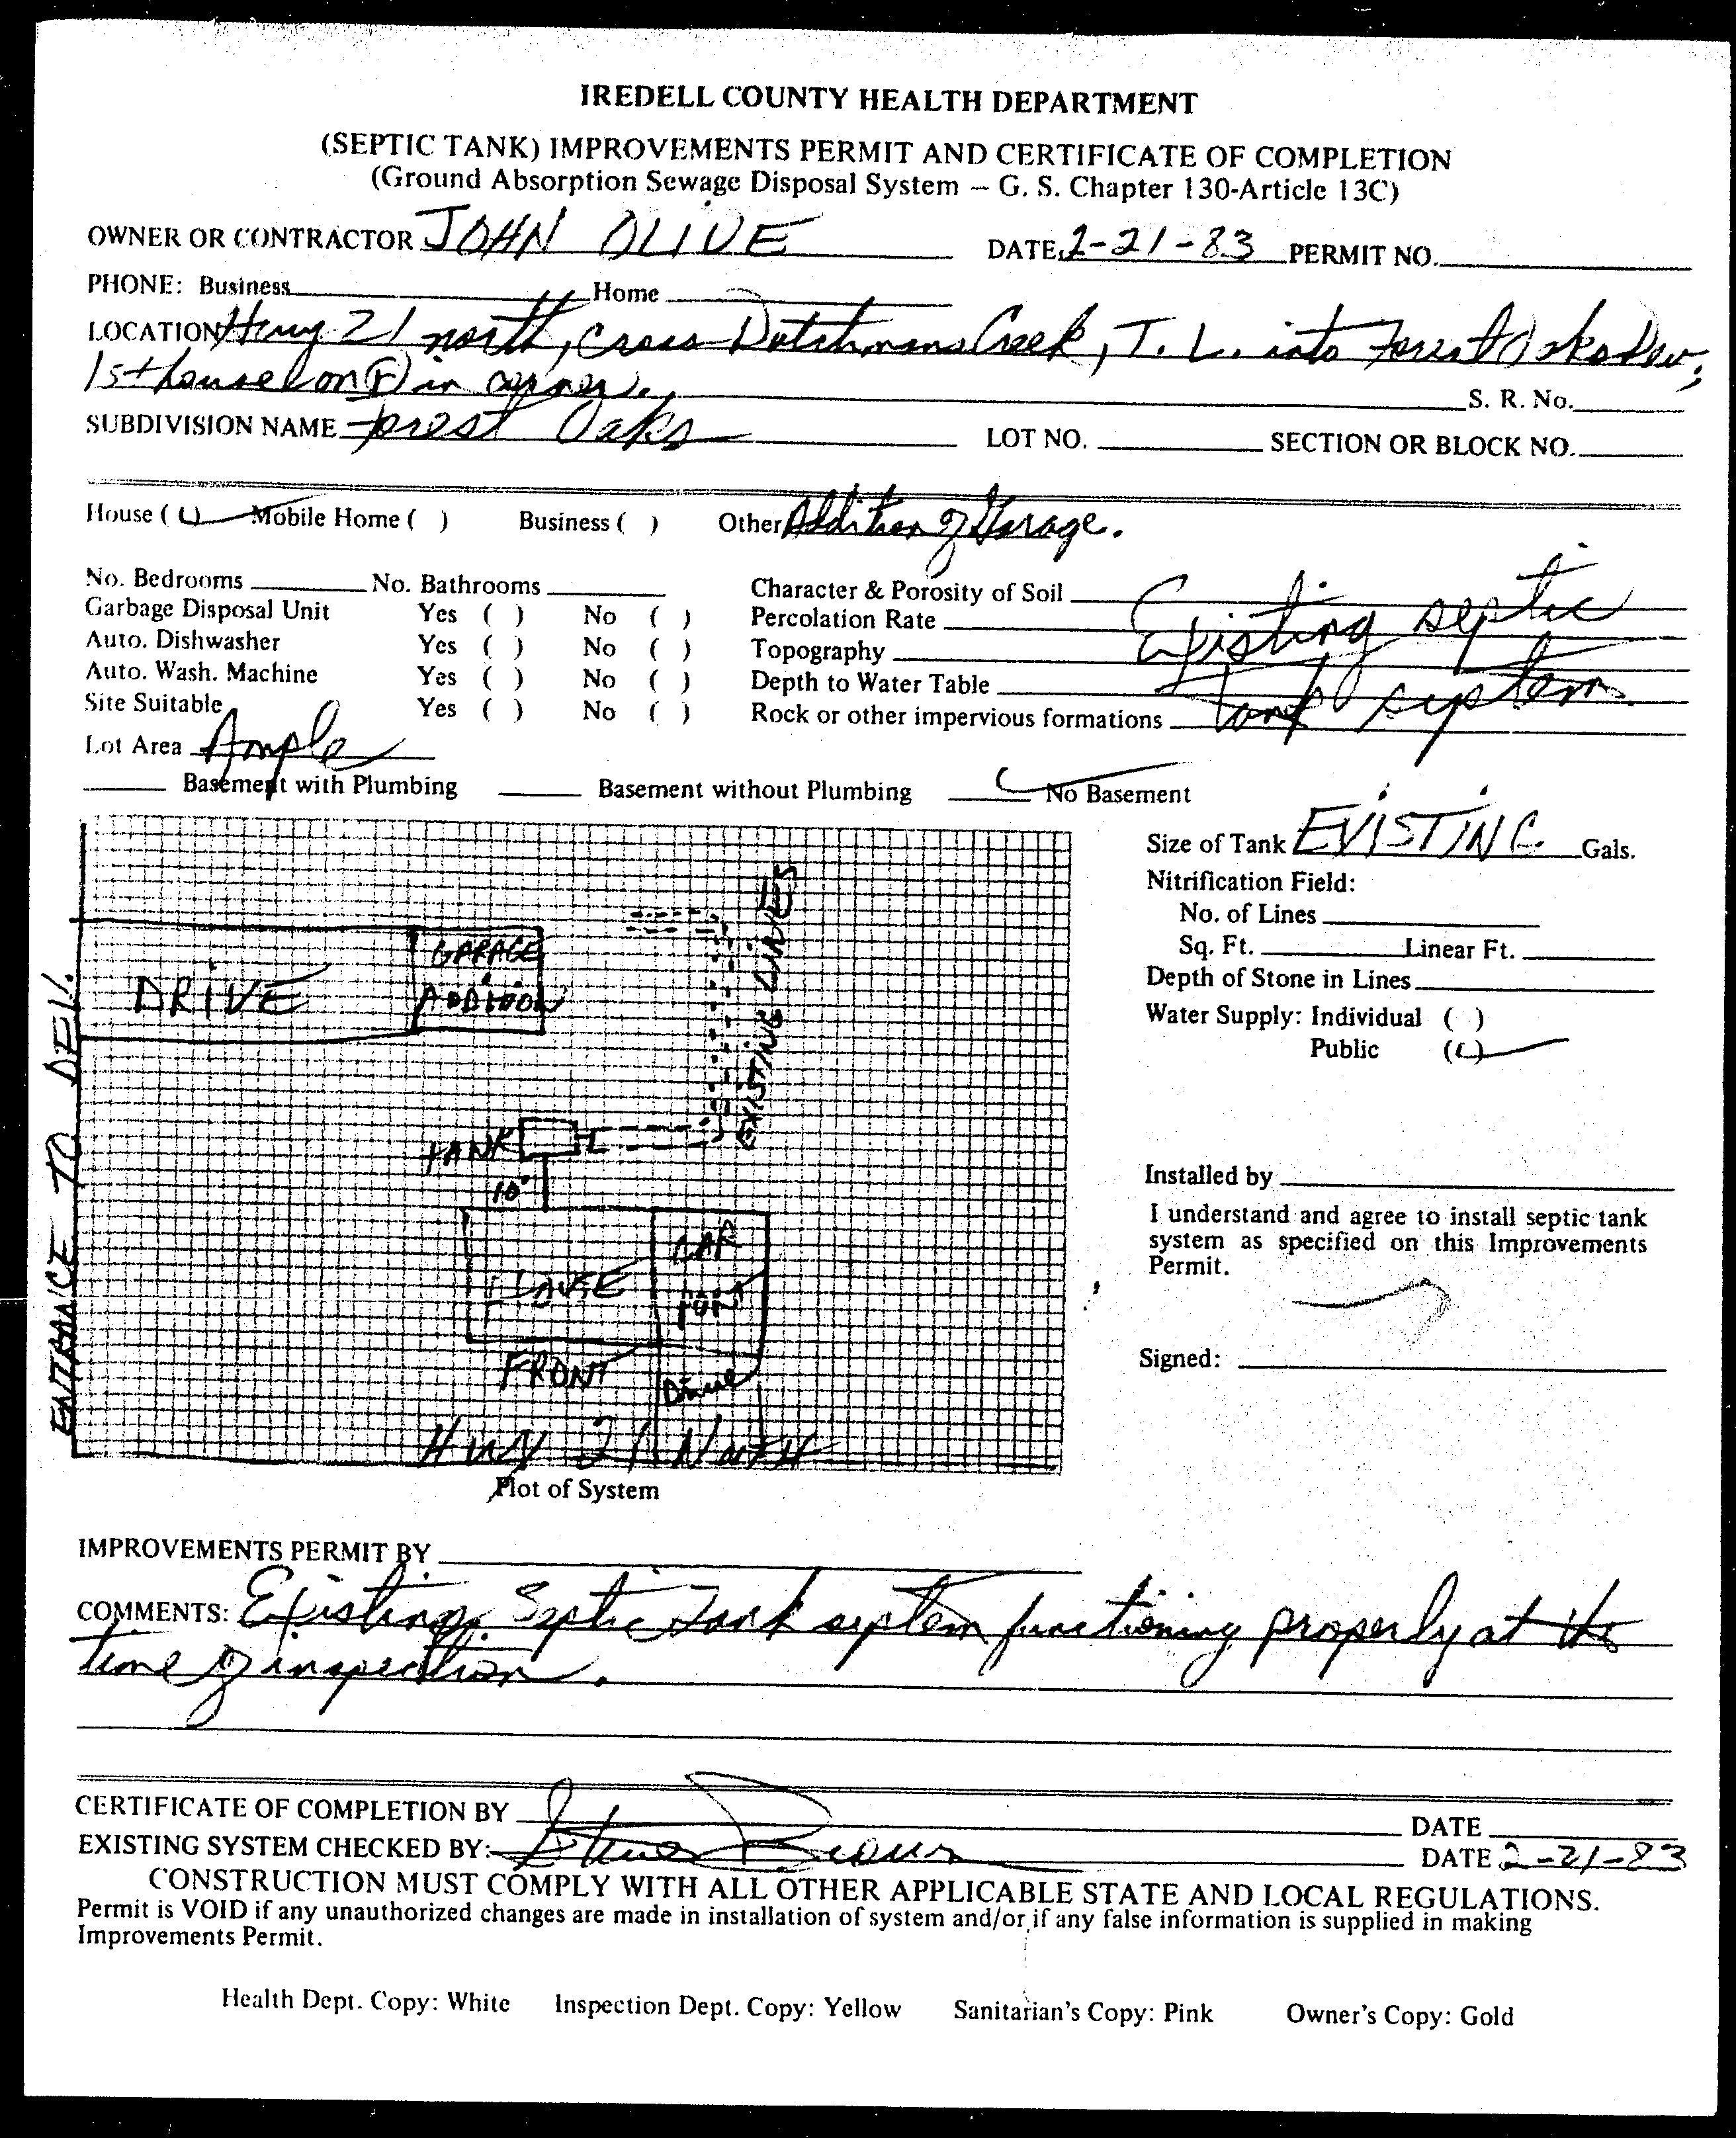 IREDELL COUNTY HEALTH DEPARTMENT
(SEPTIC TANK) IMPROVEMENTS PERMIT AND CERTIFICATE OF COMPLETION
(Ground Absorption Sewage Disposal System – G. S. Chapter 130-Article 13C)
OWNER OR CONTRACTOR JOHN OLIVE DATE 2-21-83 PERMIT NO.
PHONE: Business Home
LOCATION Hwy 21 north, cross Dutchmans Creek, T. L. into Forest Oaks Dev,
1st house on (R) in corner.
S. R. No.
SUBDIVISION NAME Forest Oaks LOT NO. SECTION OR BLOCK NO.
House ( ) Mobile Home ( ) Business ( ) Other Addition of Garage.
No. Bedrooms No. Bathrooms Character & Porosity of Soil Existing septic
Garbage Disposal Unit Yes ( ) No ( ) Percolation Rate
Auto. Dishwasher Yes ( ) No ( ) Topography
Auto. Wash. Machine Yes ( ) No ( ) Depth to Water Table Tank system
Site Suitable Yes ( ) No ( ) Rock or other impervious formations
Lot Area Ample
Basement with Plumbing Basement without Plumbing No Basement
Size of Tank EXISTING Gals.
Nitrification Field:
No. of Lines
Sq. Ft. Linear Ft.
Depth of Stone in Lines
Water Supply: Individual ( )
Public ( )
Installed by
I understand and agree to install septic tank
system as specified on this Improvements
Permit.
Signed:
ENTRANCE TO DEV.
DRIVE
GARAGE
ADDITION
EXISTING LINES
TANK
10'
HOUSE
CAR
PORT
FRONT
Drive
Hwy 21 North
Plot of System
IMPROVEMENTS PERMIT BY
COMMENTS: Existing Septic Tank system functioning properly at the
time of inspection.
CERTIFICATE OF COMPLETION BY DATE
EXISTING SYSTEM CHECKED BY: DATE 2-21-83
CONSTRUCTION MUST COMPLY WITH ALL OTHER APPLICABLE STATE AND LOCAL REGULATIONS.
Permit is VOID if any unauthorized changes are made in installation of system and/or if any false information is supplied in making
Improvements Permit.
Health Dept. Copy: White Inspection Dept. Copy: Yellow Sanitarian's Copy: Pink Owner's Copy: Gold